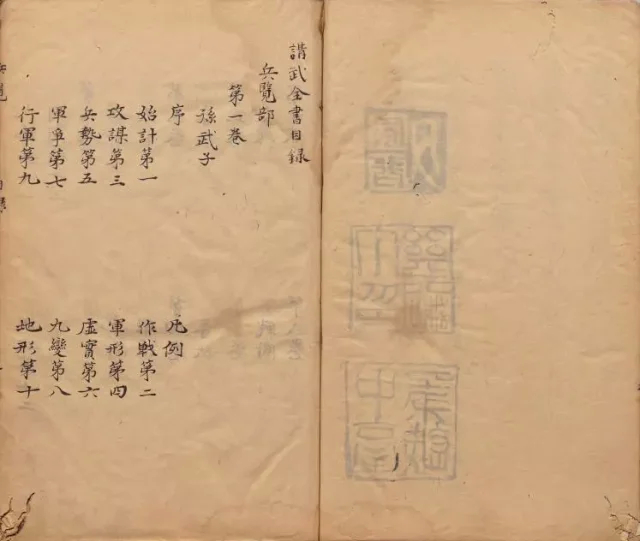 諧武全書目録
兵覽部
第一卷
孫武子
序
凡例
始計第一
作戰第二
攻謀第三
軍形第四
兵勢第五
虛實第六
軍爭第七
九變第八
行軍第九
地形第十